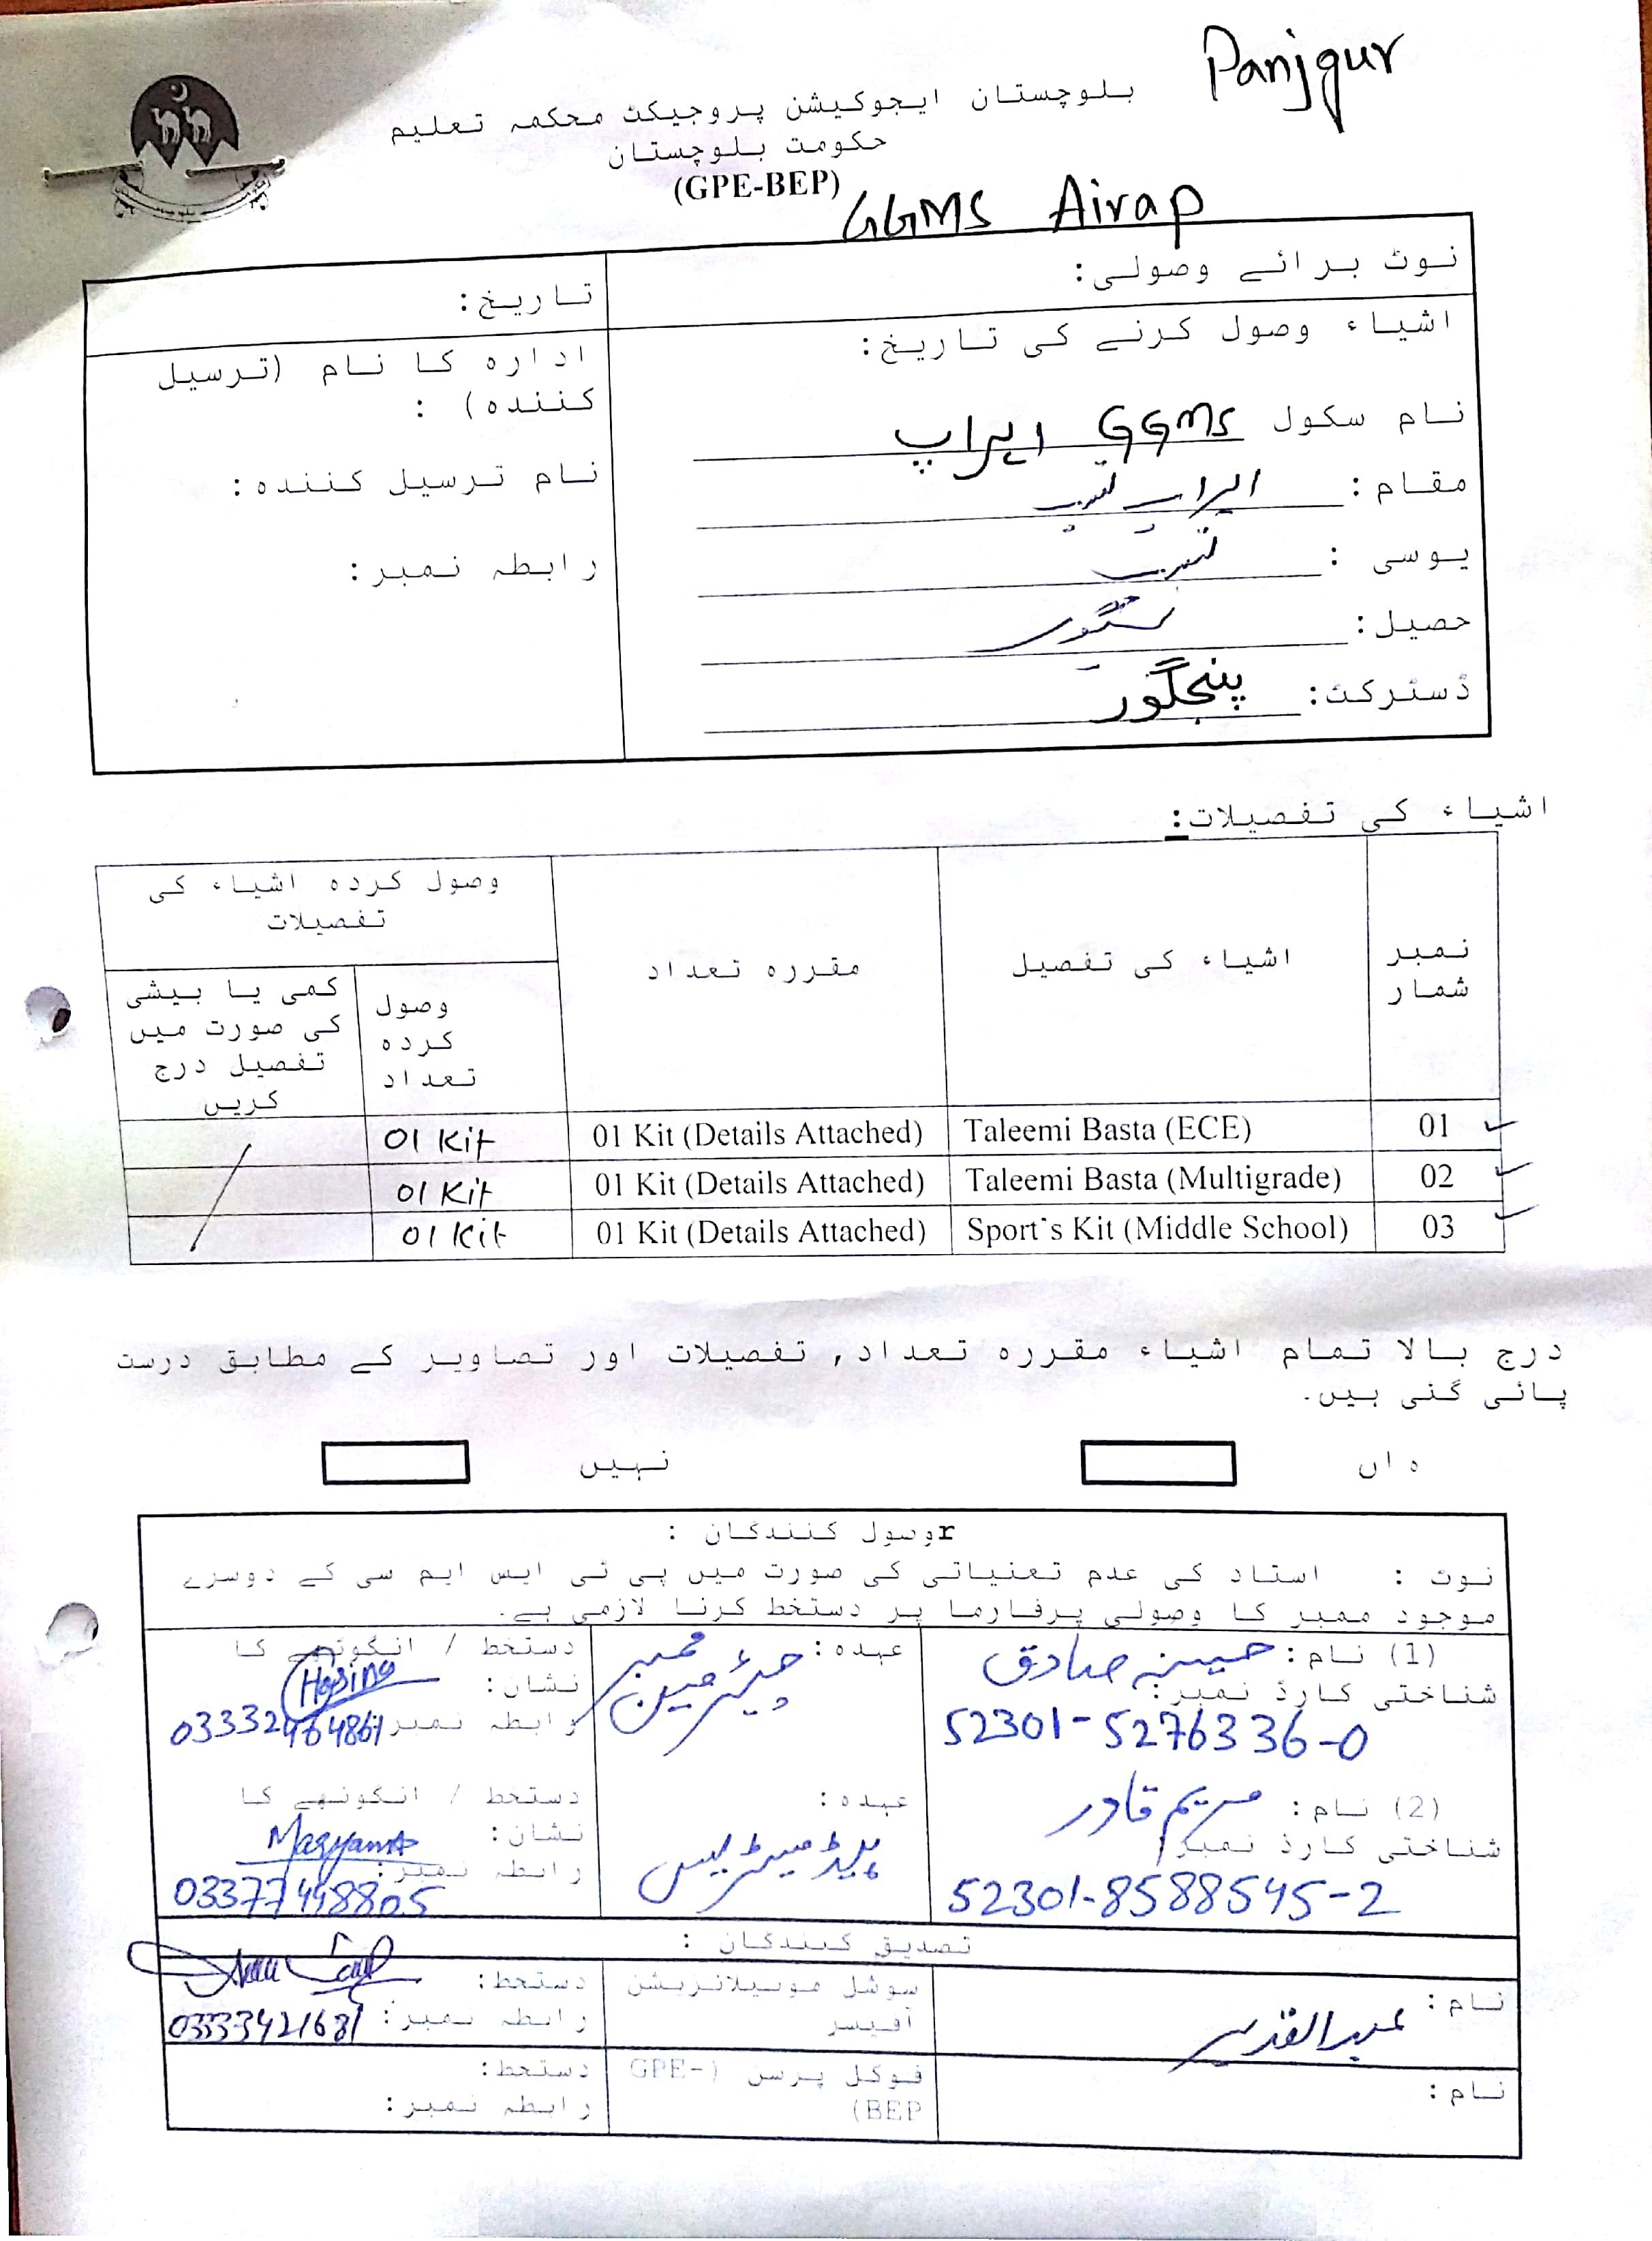 Panjgur
بلوچستان ایجوکیشن پروجیکٹ محکمہ تعلیم
حکومت بلوچستان
(GPE-BEP)
GGMS Airap
نوٹ برائے وصولی:
تاریخ:
اشیاء وصول کرنے کی تاریخ:
نام سکول GGMS ایراپ
مقام: ایراپ
یوسی :
حصیل:
ڈسٹرکٹ: پنجگور
ادارہ کا نام (ترسیل
کنندہ) :
نام ترسیل کنندہ:
رابطہ نمبر:
اشیاء کی تفصیلات:
نمبر شمار
اشیاء کی تفصیل
مقررہ تعداد
وصول کردہ اشیاء کی
تفصیلات
وصول
کردہ
تعداد
کمی یا بیشی
کی صورت میں
تفصیل درج
کریں
01 Taleemi Basta (ECE) 01 Kit (Details Attached) 01 Kit
02 Taleemi Basta (Multigrade) 01 Kit (Details Attached) 01 Kit
03 Sport's Kit (Middle School) 01 Kit (Details Attached) 01 Kit
درج بالا تمام اشیاء مقررہ تعداد, تفصیلات اور تصاویر کے مطابق درست
پائی گئی ہیں۔
ہاں نہیں
rوسول کنندگان :
نوٹ : استاد کی عدم تعنیاتی کی صورت میں پی ٹی ایس ایم سی کے دوسرے
موجود ممبر کا وصولی پرفارما پر دستخط کرنا لازمی ہے۔
(1) نام: حسینہ صادق
شناختی کارڈ نمبر:
52301-5276336-0
عہدہ: ممبر
چیئرمین
دستخط / انگوٹھے کا
نشان: Hasina
رابطہ نمبر
(2) نام: مریم قادر
شناختی کارڈ نمبر
52301-8588545-2
عہدہ:
ہیڈ مسٹریس
دستخط / انگوٹھے کا
نشان: Maryam
رابطہ نمبر:
03377448805
تصدیق کنندگان :
نام: عبدالقدیر
سوشل موبیلائزیشن
آفیسر
دستخط:
رابطہ نمبر: 03333421681
نام:
فوکل پرسن (GPE-
BEP)
دستخط:
رابطہ نمبر: